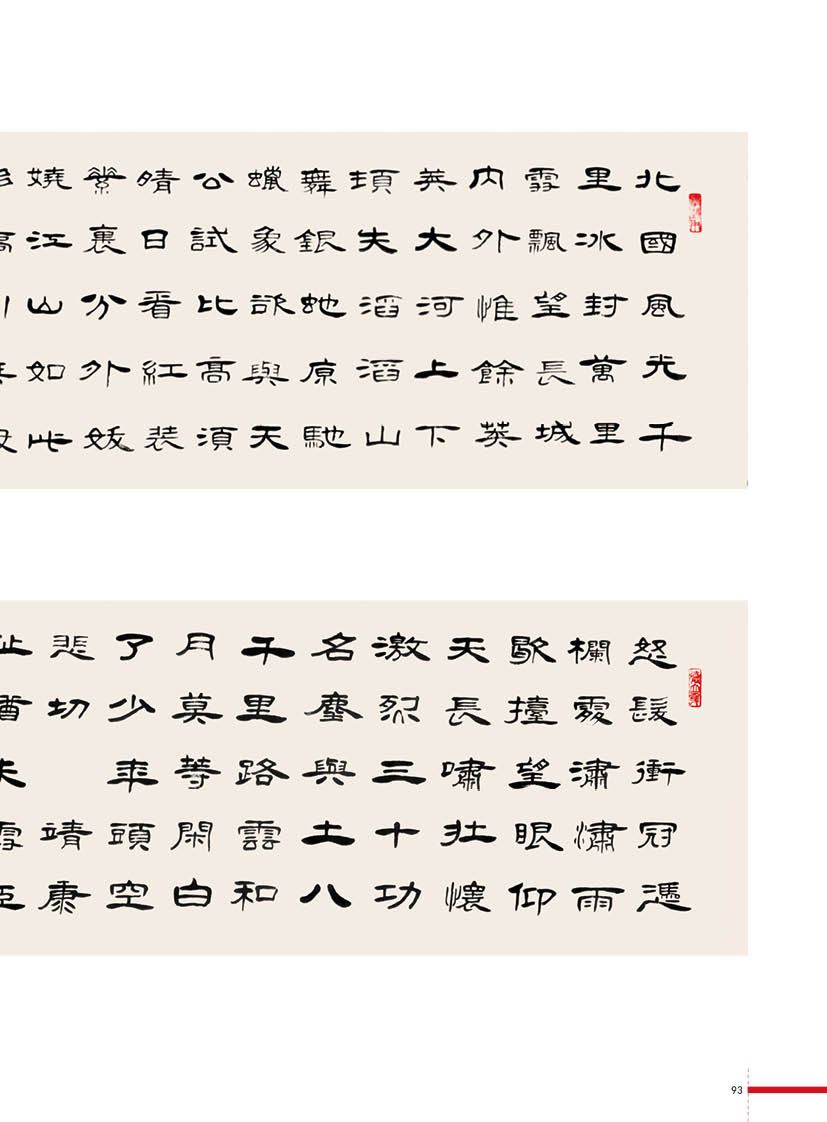 北國風光千
里冰封萬里
雪飄望長城
内外惟餘莽
莽大河上下
頓失滔滔山
舞銀蛇原馳
蠟象欲與天
公試比高須
晴日看紅裝
素裹分外妖
嬈江山如此
怒髮衝冠憑
欄處瀟瀟雨
歇擡望眼仰
天長嘯壯懷
激烈三十功
名塵與土八
千里路雲和
月莫等閑白
了少年頭空
悲切 靖康
93